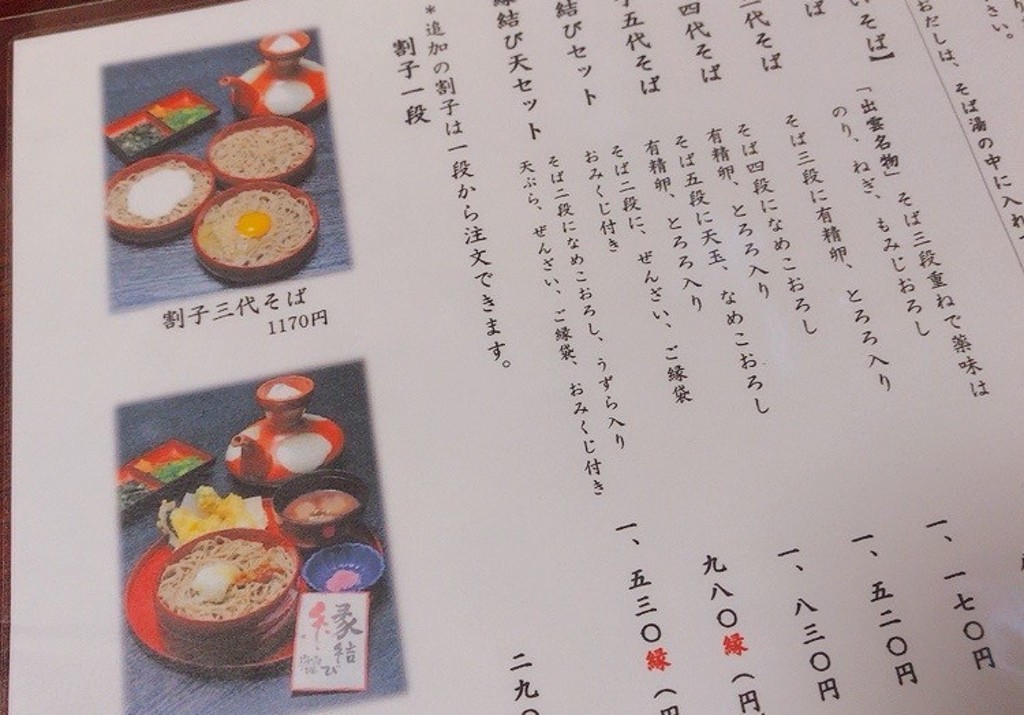 さい。
おだしは、そば湯の中に入れ
そば】
「出雲名物」そば三段重ねで薬味は
のり、ねぎ、もみじおろし
そば三段に有精卵、とろろ入り
一、一七〇円
代そば
そば四段になめこおろし
有精卵、とろろ入り
一、五二〇円
四代そば
そば五段に天玉、なめこおろし
有精卵、とろろ入り
一、八三〇円
五代そば
結びセット
そば二段に、ぜんざい、ご縁袋
おみくじ付き
九八〇縁(円
縁結び天セット
そば二段になめこおろし、うずら入り
天ぷら、ぜんざい、ご縁袋、おみくじ付き
一、五三〇縁(円
*追加の割子は一段から注文できます。
割子一段
二九〇
割子三代そば
1170円
縁結び